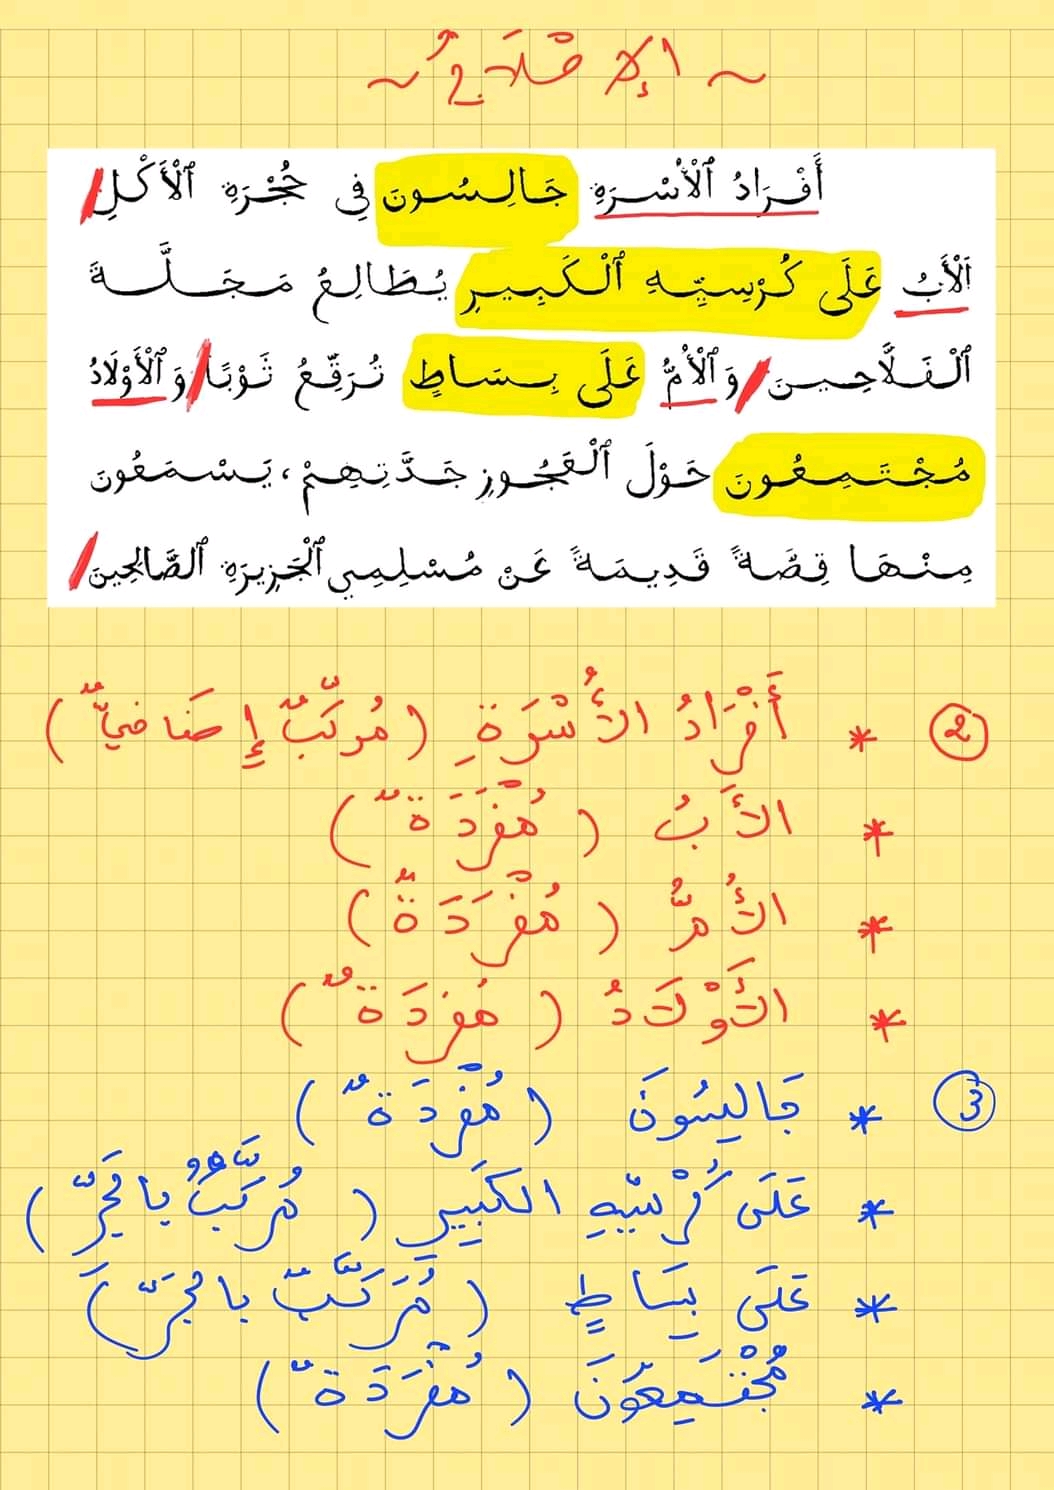 ~ الإصلاحُ ~
أَفْرَادُ ٱلْأُسْرَةِ جَالِسُونَ فِي حُجْرَةِ ٱلْأَكْلِ/
اَلْأَبُ عَلَى كُرْسِيِّهِ ٱلْكَبِيرِ يُطَالِعُ مَجَلَّةَ
ٱلْفَلَّاحِينَ/ وَٱلْأُمُّ عَلَى بِسَاطٍ تُرَقِّعُ ثَوْبًا/ وَٱلْأَوْلَادُ
مُجْتَمِعُونَ حَوْلَ ٱلْعَجُوزِ جَدَّتِهِمْ، يَسْمَعُونَ
مِنْهَا قِصَّةً قَدِيمَةً عَنْ مُسْلِمِي ٱلْجَزِيرَةِ ٱلصَّالِحِينَ/
② * أَفْرَادُ الأُسْرَةِ (مُركَّبٌ إِضَافيٌّ)
* الأَبُ (مُفْرَدَةٌ)
* الأُمُّ (مُفْرَدَةٌ)
* الأَوْلَادُ (مُفرَدَةٌ)
③ * جَالِسُونَ (مُفْرَدَةٌ)
* عَلَى كُرْسيِّهِ الكَبِيرِ (مُركَّبٌ بالجَرِّ)
* عَلَى بِسَاطٍ (مُرَكَّبٌ بالجَرِّ)
* مُجْتَمِعُونَ (مُفْرَدَةٌ)